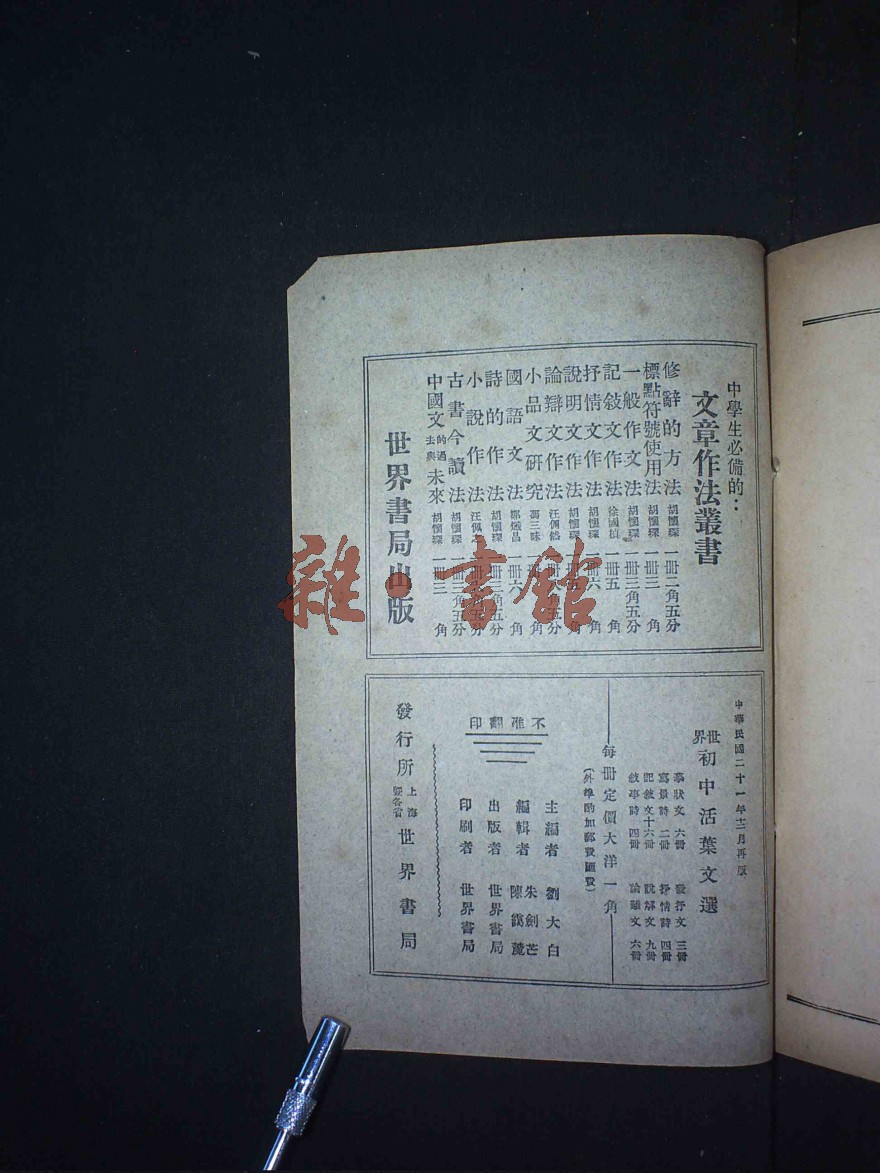 中學生必備的：
文章作法叢書
修辭的方法 胡懷琛 一冊二角五分
標點符號使用法 胡懷琛 一冊三角
一般作文法 胡懷琛 一冊三角五分
記敍文作法 徐國楨 一冊五角
抒情文作法 胡懷琛 一冊六角
說明文作法 胡懷琛 一冊角
論辯文作法 角五分
小品文研究 馮三昧 一冊角
國語文法 一冊六角
詩的作法 胡懷琛 角五分
小說作法 角五分
古書今讀法 胡懷琛 一冊二角五分
中國文的過去與未來 胡懷琛 一冊三角
世界書局出版
雜·書館
中華民國二十一年十二月再版
世界初中活葉文選
摹狀文 六冊 發抒文 三冊
寫景詩 二冊 抒情詩 四冊
記敘文十六冊 說解文 九冊
敘事詩 四冊 論題文 六冊
每冊定價大洋一角
(外埠酌加郵費匯費)
不准翻印
主編者 劉大白
編輯者 朱劍芒 陳靄麓
出版者 世界書局
印刷者 世界書局
發行所 上海暨各省 世界書局